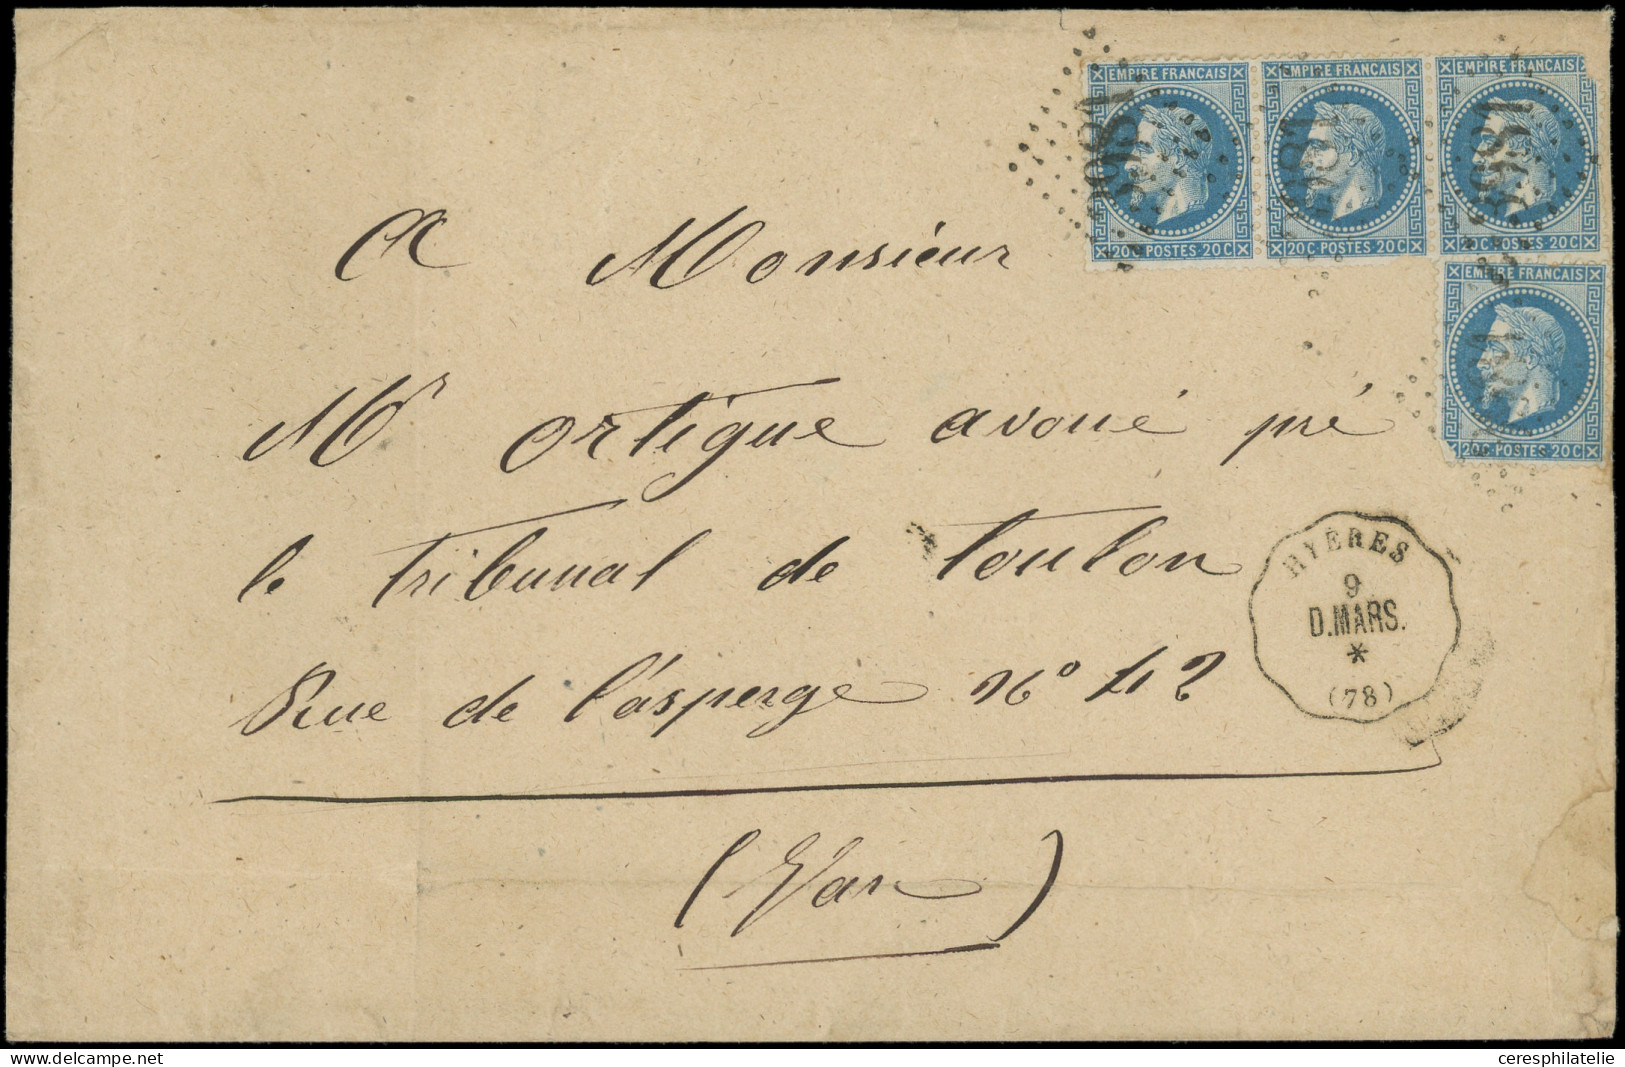 EMPIRE FRANÇAIS EMPIRE FRANÇAIS EMPIRE FRANÇAIS
20C POSTES 20C 20C POSTES 20C 20C POSTES 20C
EMPIRE FRANÇAIS
20C POSTES 20C
A Monsieur
Mr Ortigue avoué pré
le tribunal de Toulon
Rue de l'asperge No 42
(Var)
HYÈRES
9
D.MARS.
*
(78)
www.delcampe.net
ceresphilatelie